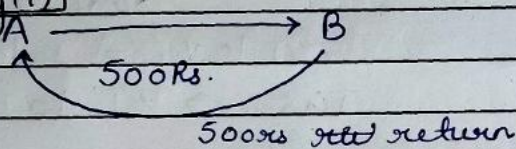 A → B
500Rs.
500rs return